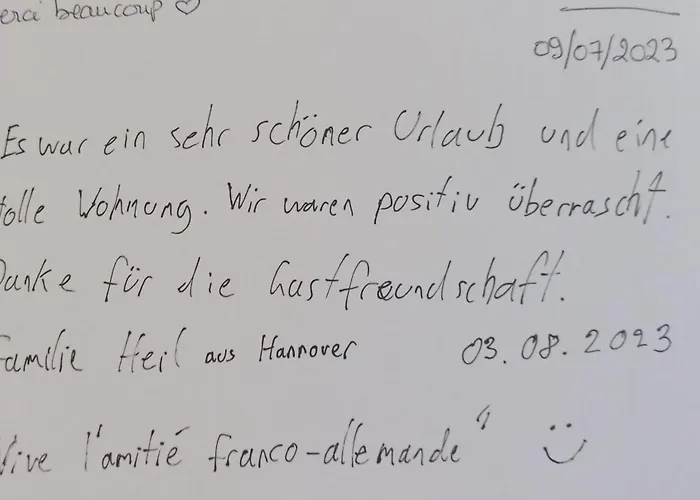 era beaucoup ♡
09/07/2023
Es war ein sehr schöner Urlaub und eine
tolle Wohnung. Wir waren positiv überrascht.
Danke für die Gastfreundschaft.
Familie Heil aus Hannover 03.08.2023
Vive l'amitié franco-allemande" :)